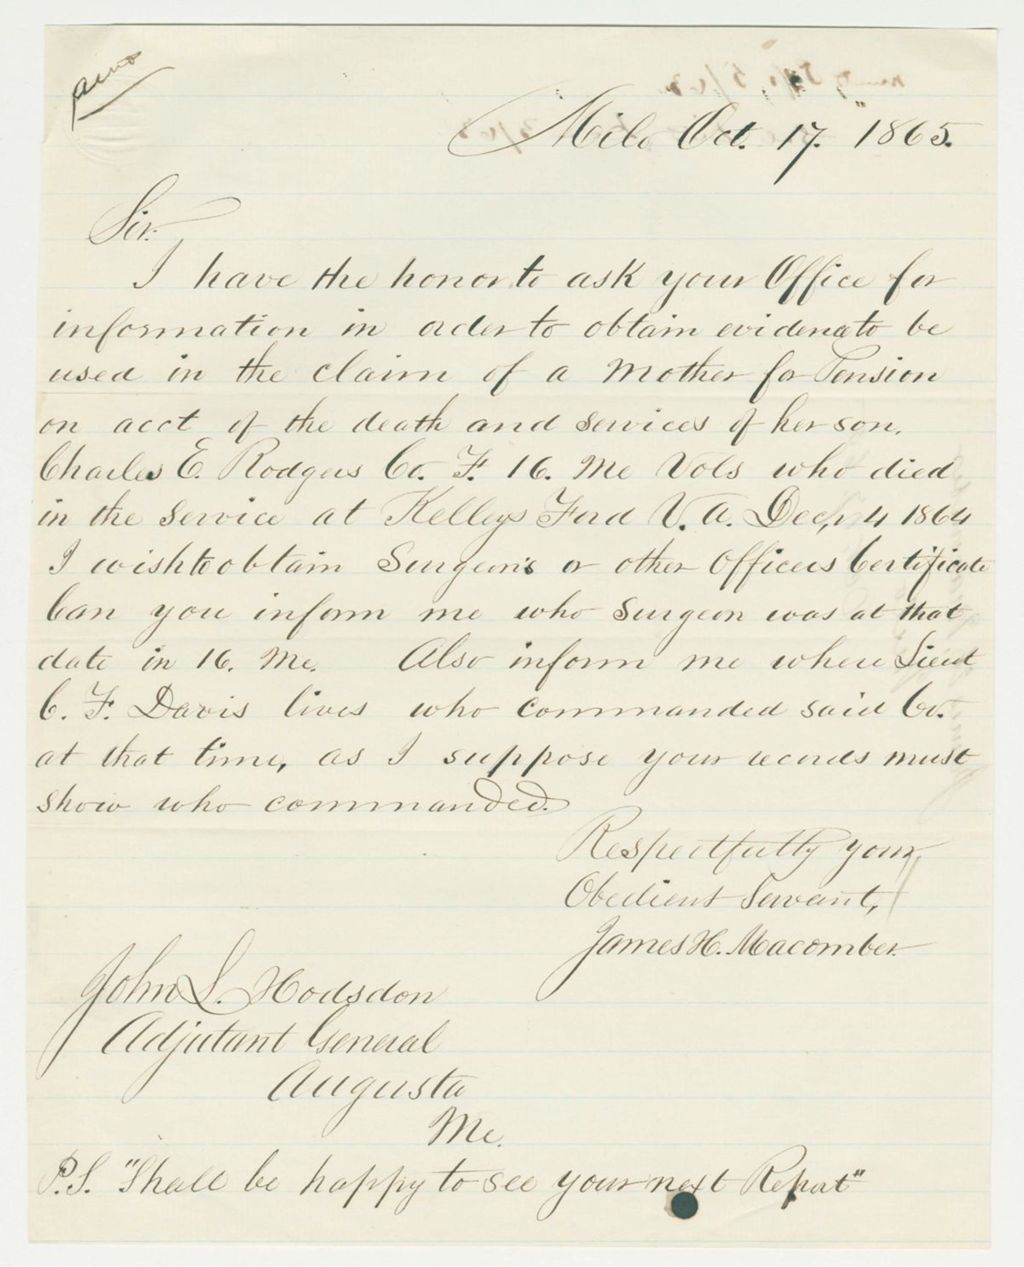 Milo Oct. 17. 1865.
Sir.
I have the honor to ask your Office for
information in order to obtain evidence to be
used in the claim of a Mother for Pension
on acct of the death and services of her son.
Charles E. Rodgers Co. F. 16. Me Vols who died
in the service at Kellys Ford V.A. Decr 4 1864
I wish to obtain Surgeon's or other Officers Certificate
Can you inform me who Surgeon was at that
date in 16. Me. Also inform me where Lieut
C. F. Davis lives who commanded said Co.
at that time, as I suppose your records must
show who commanded.
Respectfully your
Obedient Servant,
James H. Macomber
John L. Hodsdon
Adjutant General
Augusta
Me.
P.S. "Shall be happy to see your next Report"